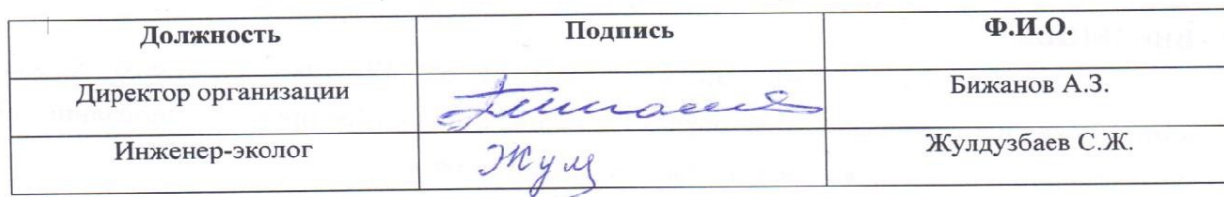 Должность Подпись Ф.И.О.
Директор организации Бижанов А.З.
Инженер-эколог Жул Жулдузбаев С.Ж.